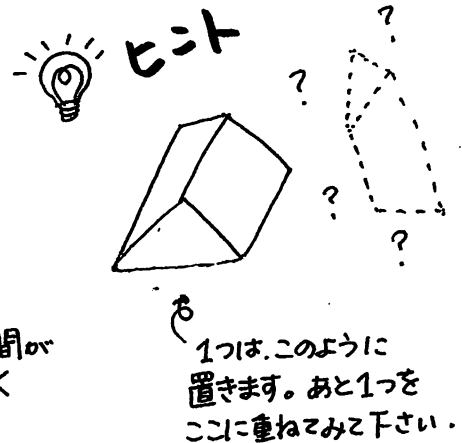 ヒント
?
?
?
?
間が
く
1つは、このように
置きます。あと1つを
ここに重ねてみて下さい.